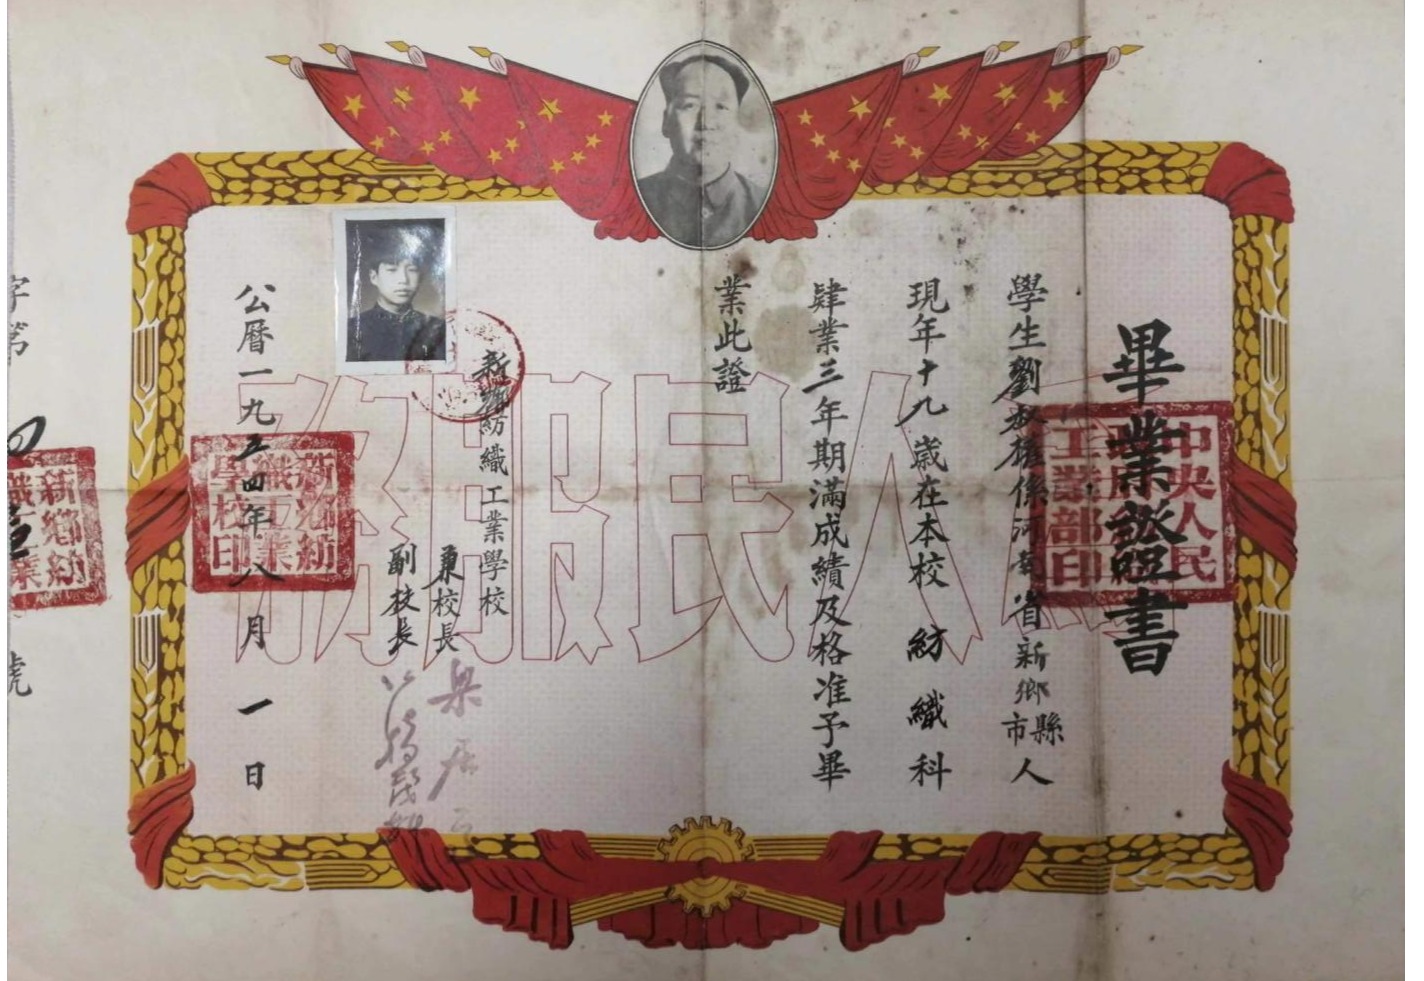 畢業證書
學生劉叔權係河南省新鄉縣市人
現年十九歲在本校紡織科
肄業三年期滿成績及格准予畢
業此證
新鄉紡織工業學校
兼校長
副校長
公曆一九五四年八月一日
字第
號
為人民服務
中央人民
政府紡織
工業部印
新鄉紡
織工業
學校印
新鄉紡
織工業